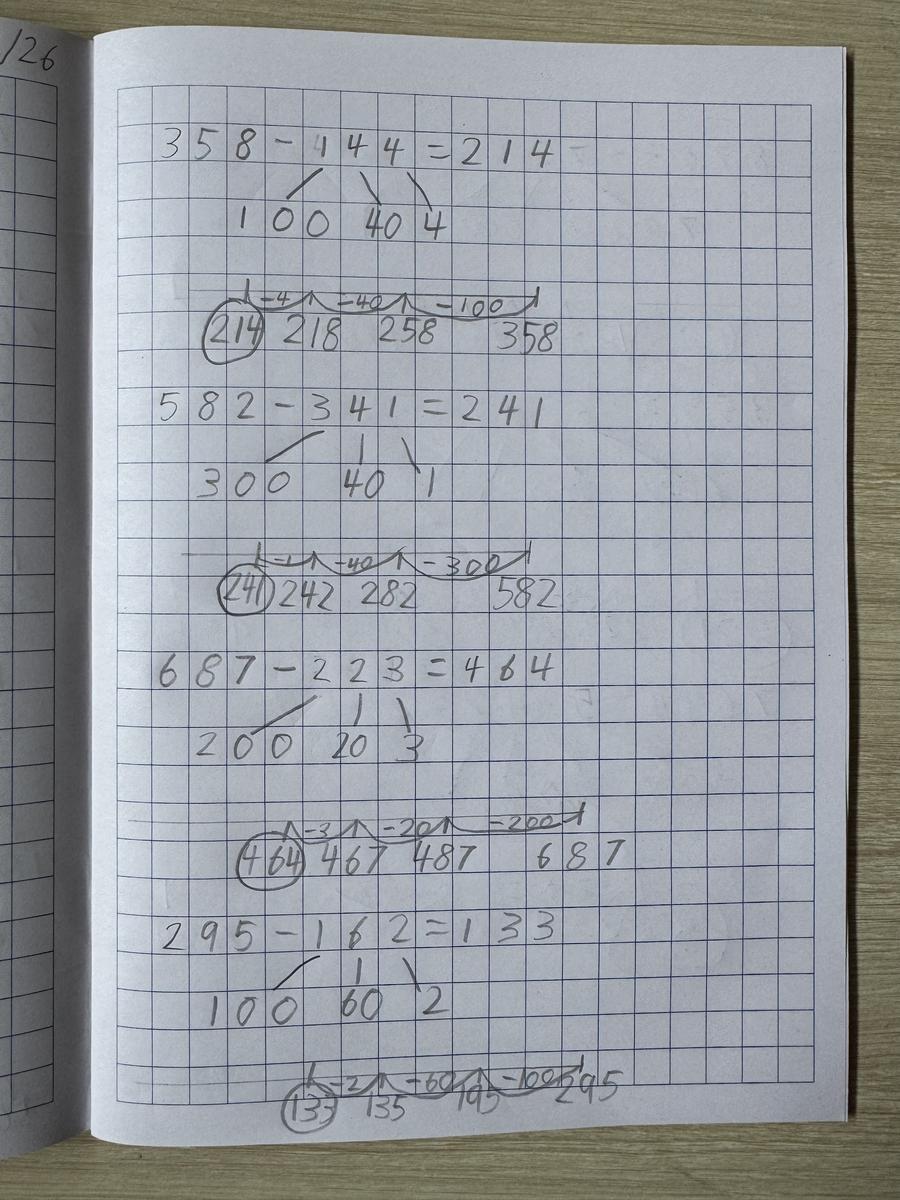 /26
358-144=214
100 40 4
-4 -40 -100
214 218 258 358
582-341=241
300 40 1
-1 -40 -300
241 242 282 582
687-223=464
200 20 3
-3 -20 -200
464 467 487 687
295-162=133
100 60 2
-2 -60 -100
133 135 195 295